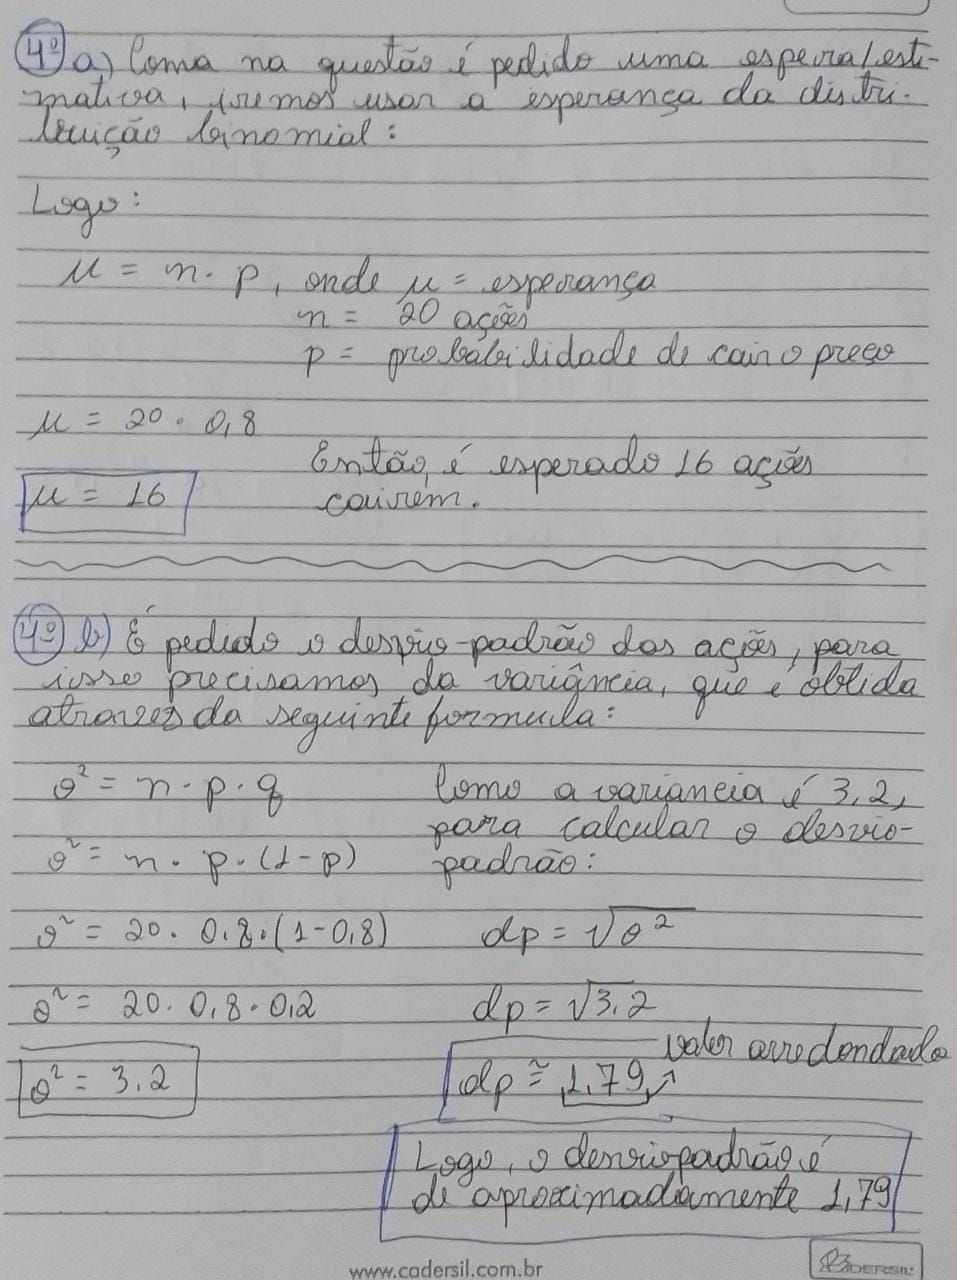 4º a) Como na questão é pedido uma espera/esti-
mativa, iremos usar a esperança da distri-
buição binomial:
Logo:
µ = n · p, onde µ = esperança
n = 20 ações
p = probabilidade de cair o preço
µ = 20 · 0,8
Então, é esperado 16 ações
µ = 16
cairem.
4º b) É pedido o desvio-padrão das ações, para
isso precisamos da variância, que é obtida
através da seguinte formula:
σ² = n · p · q
σ² = n · p · (1 - p)
σ² = 20 · 0,8 · (1 - 0,8)
σ² = 20 · 0,8 · 0,2
σ² = 3,2
Como a variancia é 3,2,
para calcular o desvio-
padrão:
dp = √σ²
dp = √3,2
valor arredondado
dp ≅ 1,79
Logo, o desvio padrão é
de aproximadamente 1,79
www.cadersil.com.br
CADERSIL